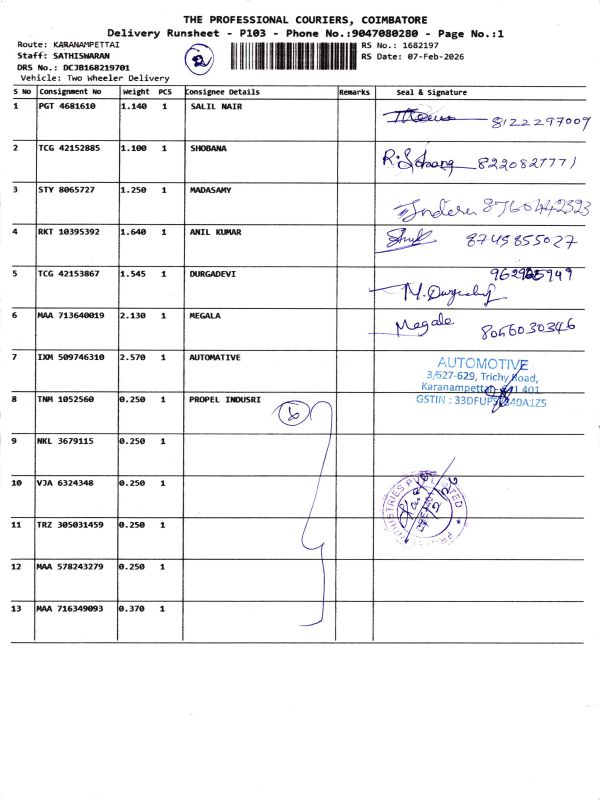 THE PROFESSIONAL COURIERS, COIMBATORE
Delivery Runsheet - P103 - Phone No.:9047080280 - Page No.:1
Route: KARANAMPETTAI
Staff: SATHISWARAN
DRS No.: DCJB168219701
Vehicle: Two Wheeler Delivery
2
RS No.: 1682197
RS Date: 07-Feb-2026
S No Consignment No Weight PCS Consignee Details Remarks Seal & Signature
1 PGT 4681610 1.140 1 SALIL NAIR 8122297009
2 TCG 42152885 1.100 1 SHOBANA 8220827771
3 STY 8065727 1.250 1 MADASAMY 8760442323
4 RKT 10395392 1.640 1 ANIL KUMAR 8745855027
5 TCG 42153867 1.545 1 DURGADEVI
6 MAA 713640019 2.130 1 MEGALA Megale 8056030346
7 IXM 509746310 2.570 1 AUTOMATIVE
AUTOMOTIVE
3/627-629, Trichy Road,
Karanampettai
8 TNM 1052560 0.250 1 PROPEL INDUSRI
6
9 NKL 3679115 0.250 1
10 VJA 6324348 0.250 1
11 TRZ 305031459 0.250 1
12 MAA 578243279 0.250 1
13 MAA 716349093 0.370 1